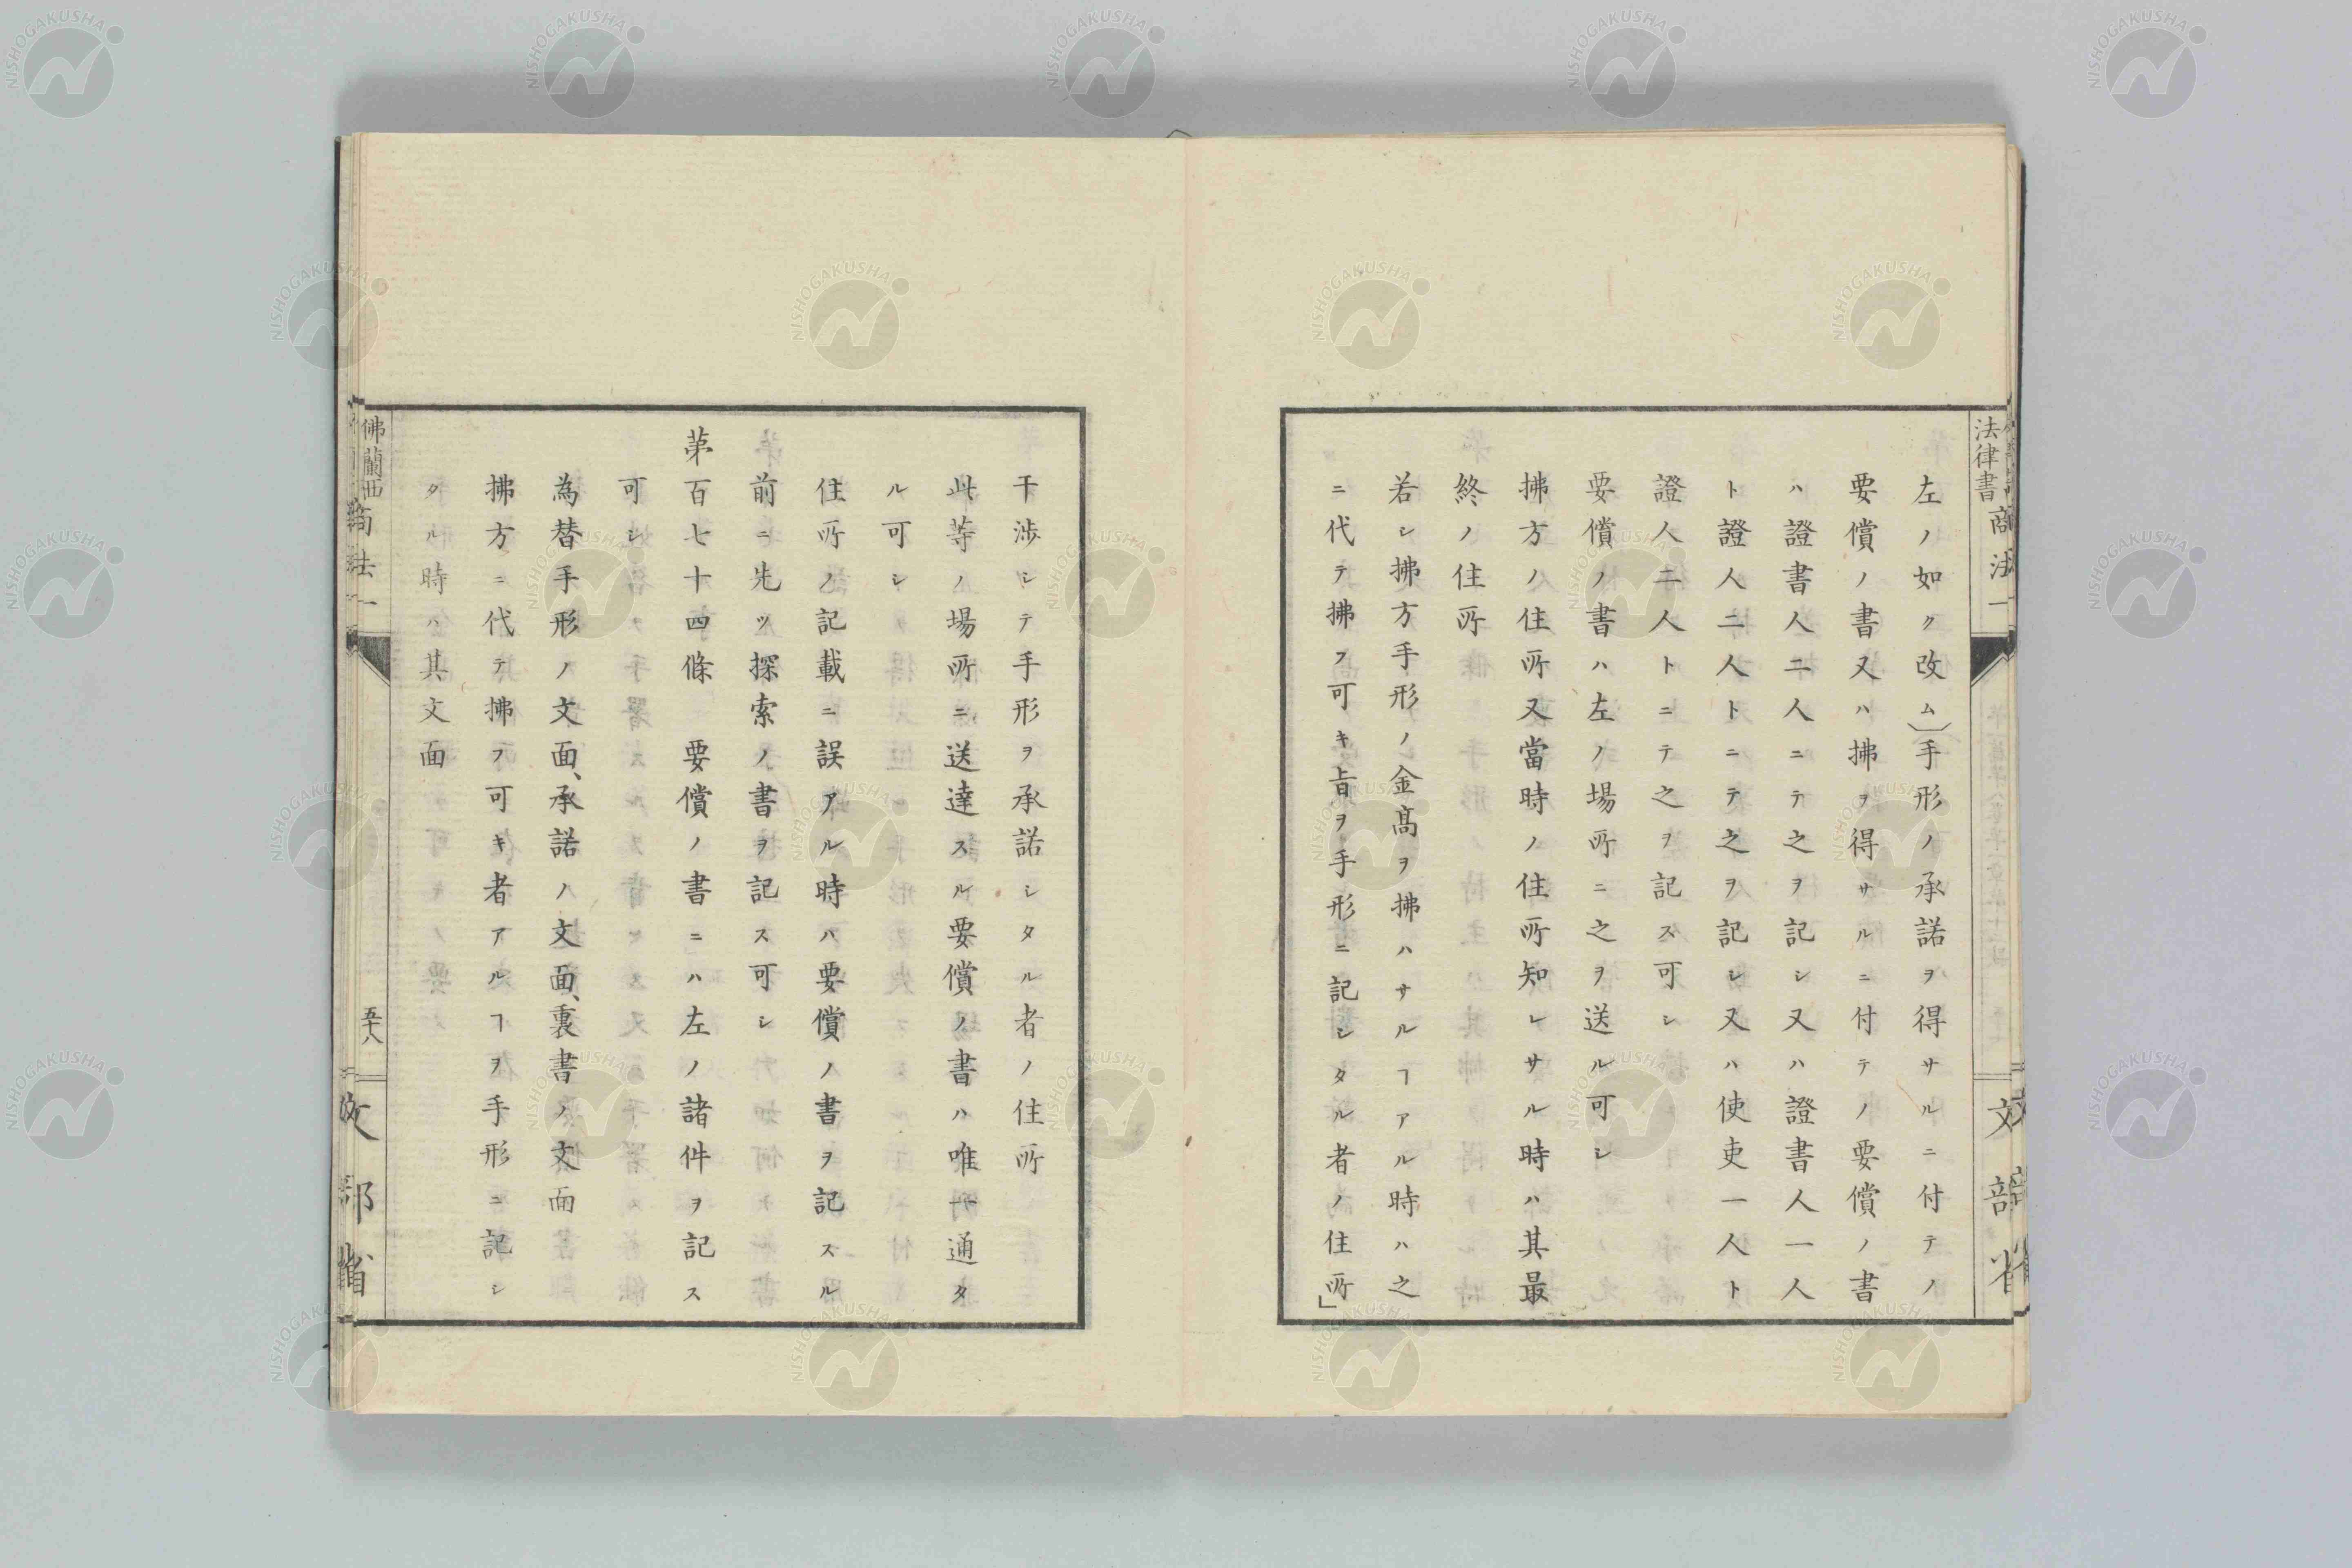 法律書 商法一
文部省
左ノ如ク改ム〕手形ノ承諾ヲ得サルニ付テノ
要償ノ書又ハ拂ヲ得サルニ付テノ要償ノ書
ハ證書人二人ニテ之ヲ記シ又ハ證書人一人
ト證人二人トニテ之ヲ記シ又ハ使吏一人ト
證人二人トニテ之ヲ記ス可シ
要償ノ書ハ左ノ場所ニ之ヲ送ル可シ
拂方ノ住所又當時ノ住所知レサル時ハ其最
終ノ住所
若シ拂方手形ノ金高ヲ拂ハサルヿアル時ハ之
ニ代テ拂フ可キ旨ヲ手形ニ記シタル者ノ住所」
干渉シテ手形ヲ承諾シタル者ノ住所
此等ノ場所ニ送達スル要償ノ書ハ唯一通タ
ル可シ
住所ノ記載ニ誤アル時ハ要償ノ書ヲ記スル
前ニ先ツ探索ノ書ヲ記ス可シ
第百七十四條 要償ノ書ニハ左ノ諸件ヲ記ス
可シ
為替手形ノ文面、承諾ノ文面、裏書ノ文面
拂方ニ代テ拂フ可キ者アルヿヲ手形ニ記シ
タル時ハ其文面
佛蘭西 商法一
五十八
文部省
NISHOGAKUSHA